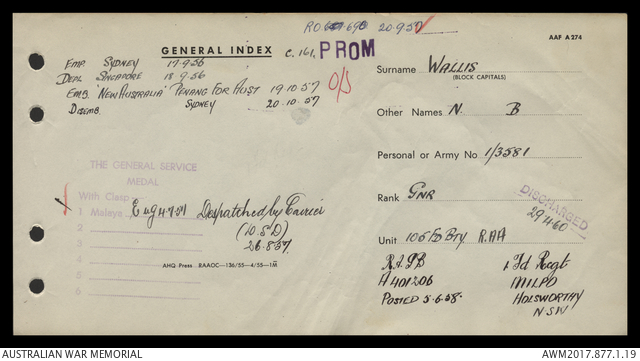 RO 690 20.9.57
GENERAL INDEX
C. 161.
PROM
AAF A 274
EMP SYDNEY 17.9.56
DEPL SINGAPORE 18.9.56
EMB. 'NEW AUSTRALIA' PENANG FOR AUST 19.10.57
DISEMB. SYDNEY 20.10.57
O/S
Surname WALLIS
(BLOCK CAPITALS)
Other Names N B
Personal or Army No. 1/3581
Rank GNR
DISCHARGED
29 4 60
Unit 106 FD BTY. R.AA
R.A.P.B 1 Fd Regt
A401206 MILPO
POSTED 5.6.58. HOLSWORTHY
NSW
THE GENERAL SERVICE
MEDAL
With Clasp
1 Malaya
2
3
4
5
6
Despatched by
(10.S.D)
26.8.57.
AHQ Press RAAOC—136/55—4/55—1M
AUSTRALIAN WAR MEMORIAL
AWM2017.877.1.19